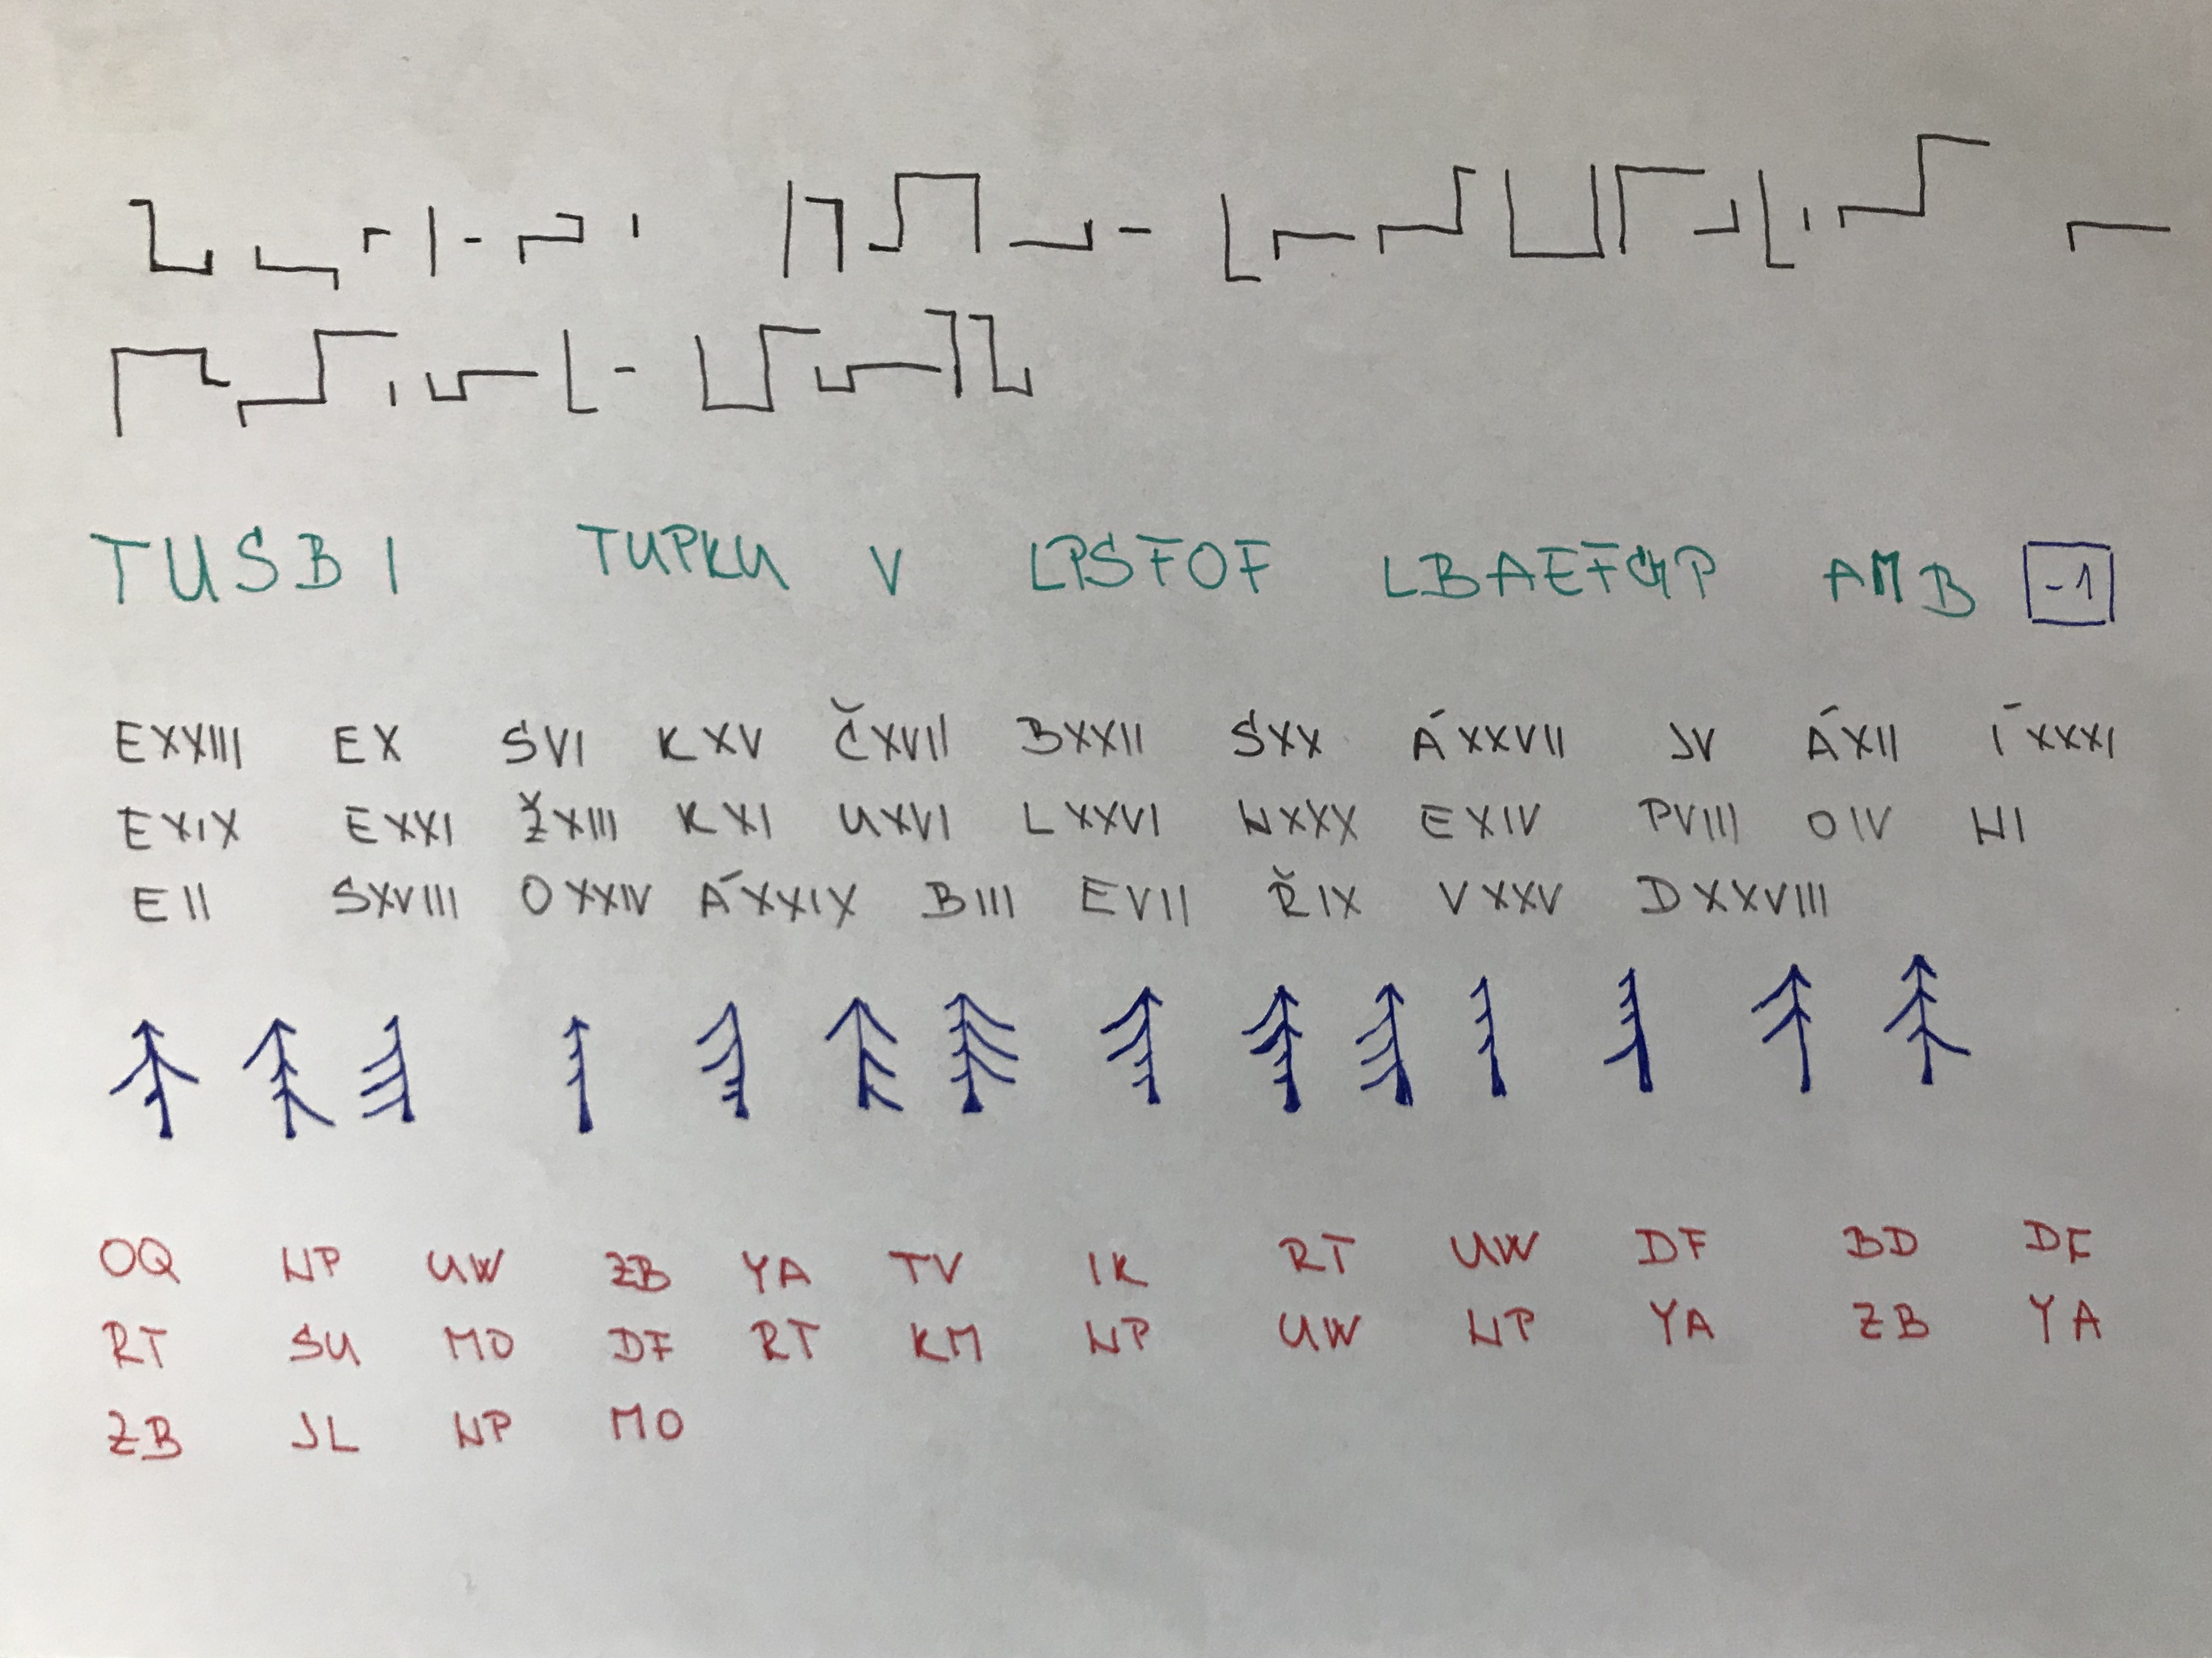 TUSBI TUPKU V LPSFOF LBAEFGP AMB -1
EXXIII EX SVI KXV ČXVII BXXII SXX ÁXXVII JV ÁXII ÍXXXI
EXIX EXXI ŽXIII KXI UXVI LXXVI NXXX EXIV PVIII OIV NI
EII SXVIII OXXIV ÁXXIX BIII EVII ŘIX VXXV DXXVIII
OQ NP UW ZB YA TV IK RT UW DF BD DF
RT SU MO DF RT KM NP UW NP YA ZB YA
ZB JL NP MO